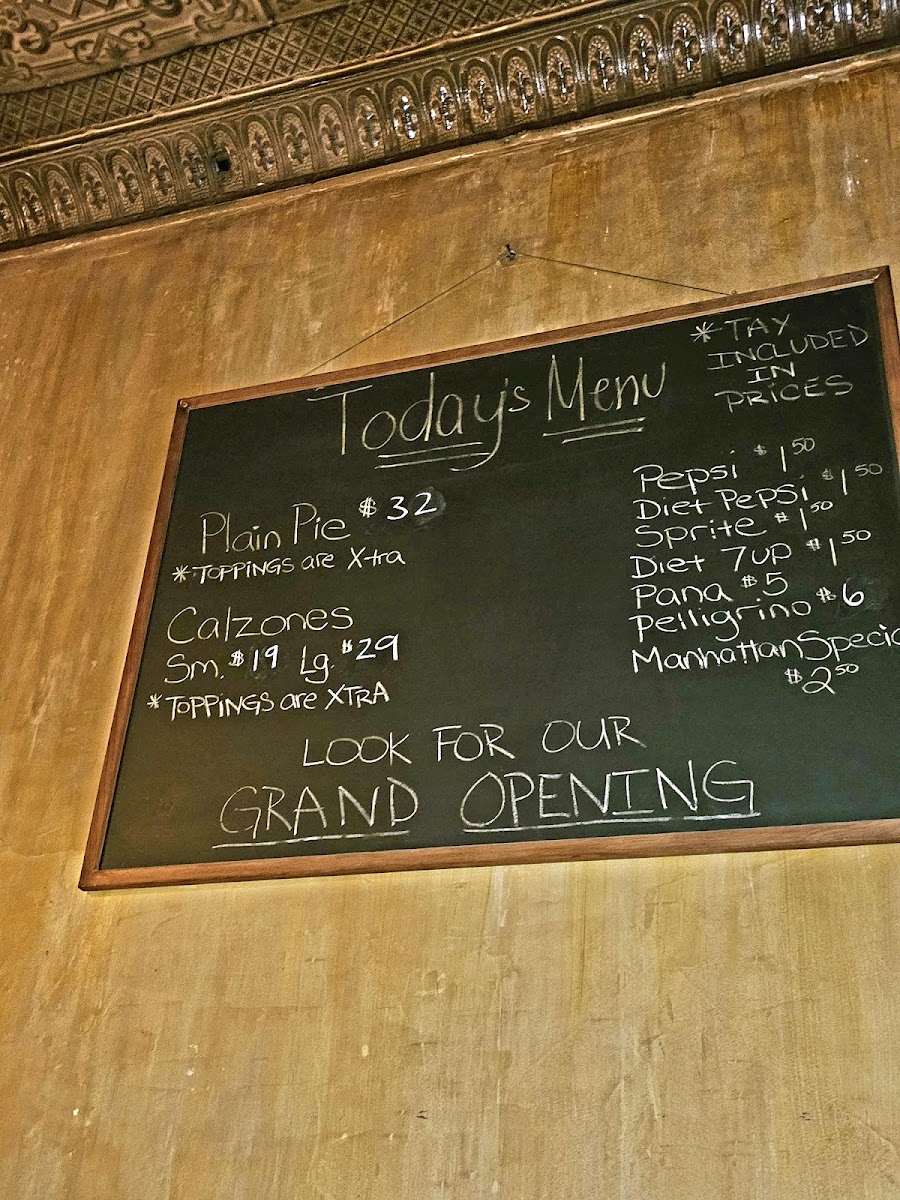 Today's Menu
*TAX
INCLUDED
IN
PRICES
Plain Pie $32
*TOPPINGS are Xtra
Calzones
Sm. $19 Lg. $29
*TOPPINGS are XTRA
Pepsi $1.50
Diet Pepsi $1.50
Sprite $1.50
Diet 7up $1.50
Pana $5
Pelligrino $6
Manhattan Specia
$2.50
LOOK FOR OUR
GRAND OPENING